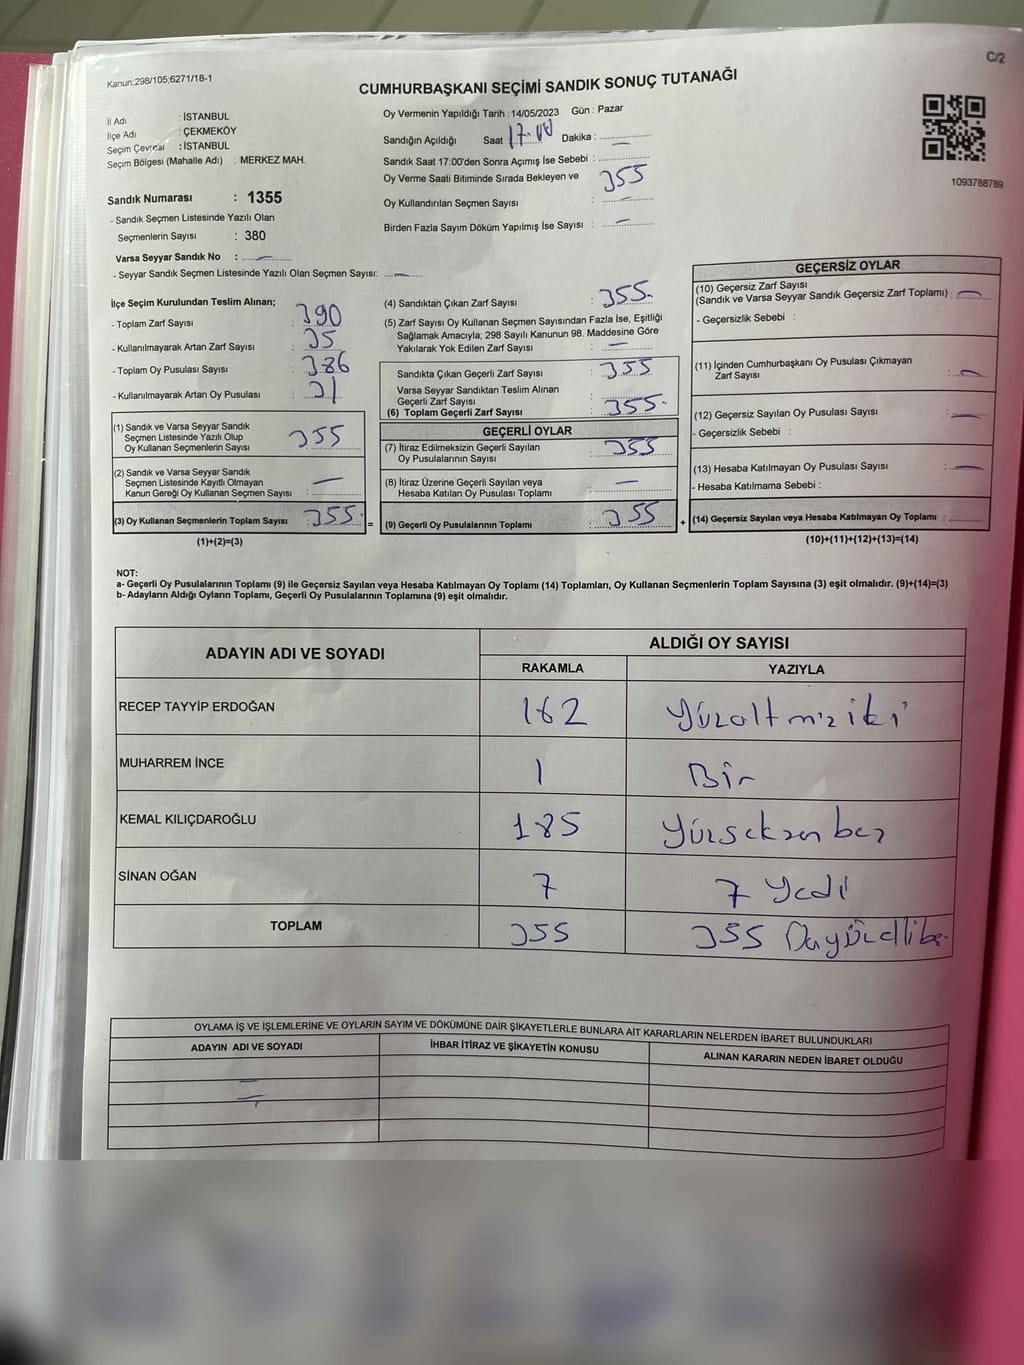 C/2
Kanun;298/105;6271/18-1
CUMHURBAŞKANI SEÇİMİ SANDIK SONUÇ TUTANAĞI
İl Adı : İSTANBUL
İlçe Adı : ÇEKMEKÖY
Seçim Çevresi : İSTANBUL
Seçim Bölgesi (Mahalle Adı) : MERKEZ MAH.
Sandık Numarası : 1355
- Sandık Seçmen Listesinde Yazılı Olan
Seçmenlerin Sayısı : 380
Varsa Seyyar Sandık No : —
- Seyyar Sandık Seçmen Listesinde Yazılı Olan Seçmen Sayısı: —
Oy Vermenin Yapıldığı Tarih : 14/05/2023 Gün : Pazar
Sandığın Açıldığı Saat 17.00 Dakika : —
Sandık Saat 17:00'den Sonra Açımış İse Sebebi :
Oy Verme Saati Bitiminde Sırada Bekleyen ve 355
Oy Kullandırılan Seçmen Sayısı : —
Birden Fazla Sayım Döküm Yapılmış İse Sayısı : —
1093788789
İlçe Seçim Kurulundan Teslim Alınan;
- Toplam Zarf Sayısı : 390
- Kullanılmayarak Artan Zarf Sayısı : 35
- Toplam Oy Pusulası Sayısı : 386
- Kullanılmayarak Artan Oy Pusulası : 31
(1) Sandık ve Varsa Seyyar Sandık
Seçmen Listesinde Yazılı Olup
Oy Kullanan Seçmenlerin Sayısı : 355
(2) Sandık ve Varsa Seyyar Sandık
Seçmen Listesinde Kayıtlı Olmayan
Kanun Gereği Oy Kullanan Seçmen Sayısı : —
(3) Oy Kullanan Seçmenlerin Toplam Sayısı : 355 =
(1)+(2)=(3)
(4) Sandıktan Çıkan Zarf Sayısı : 355
(5) Zarf Sayısı Oy Kullanan Seçmen Sayısından Fazla İse, Eşitliği
Sağlamak Amacıyla, 298 Sayılı Kanunun 98. Maddesine Göre
Yakılarak Yok Edilen Zarf Sayısı : —
Sandıkta Çıkan Geçerli Zarf Sayısı : 355
Varsa Seyyar Sandıktan Teslim Alınan
Geçerli Zarf Sayısı :
(6) Toplam Geçerli Zarf Sayısı : 355
GEÇERLİ OYLAR
(7) İtiraz Edilmeksizin Geçerli Sayılan
Oy Pusulalarının Sayısı : 355
(8) İtiraz Üzerine Geçerli Sayılan veya
Hesaba Katılan Oy Pusulası Toplamı : —
(9) Geçerli Oy Pusulalarının Toplamı : 355 +
GEÇERSİZ OYLAR
(10) Geçersiz Zarf Sayısı
(Sandık ve Varsa Seyyar Sandık Geçersiz Zarf Toplamı) : —
- Geçersizlik Sebebi :
(11) İçinden Cumhurbaşkanı Oy Pusulası Çıkmayan
Zarf Sayısı : —
(12) Geçersiz Sayılan Oy Pusulası Sayısı : —
- Geçersizlik Sebebi :
(13) Hesaba Katılmayan Oy Pusulası Sayısı : —
- Hesaba Katılmama Sebebi :
(14) Geçersiz Sayılan veya Hesaba Katılmayan Oy Toplamı :
(10)+(11)+(12)+(13)=(14)
NOT:
a- Geçerli Oy Pusulalarının Toplamı (9) ile Geçersiz Sayılan veya Hesaba Katılmayan Oy Toplamı (14) Toplamları, Oy Kullanan Seçmenlerin Toplam Sayısına (3) eşit olmalıdır. (9)+(14)=(3)
b- Adayların Aldığı Oyların Toplamı, Geçerli Oy Pusulalarının Toplamına (9) eşit olmalıdır.
ADAYIN ADI VE SOYADI
ALDIĞI OY SAYISI
RAKAMLA YAZIYLA
RECEP TAYYİP ERDOĞAN 162 Yüzaltmiziki
MUHARREM İNCE 1 Bir
KEMAL KILIÇDAROĞLU 185 Yüzseksenbeş
SİNAN OĞAN 7 7 Yedi
TOPLAM 355 355
OYLAMA İŞ VE İŞLEMLERİNE VE OYLARIN SAYIM VE DÖKÜMÜNE DAİR ŞİKAYETLERLE BUNLARA AİT KARARLARIN NELERDEN İBARET BULUNDUKLARI
ADAYIN ADI VE SOYADI İHBAR İTİRAZ VE ŞİKAYETİN KONUSU ALINAN KARARIN NEDEN İBARET OLDUĞU